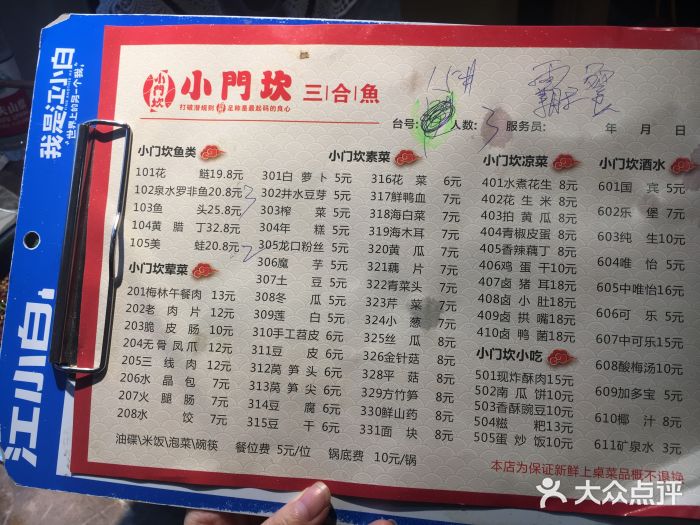 我是江小白
世界上的另一个我
江小白
小门坎
小門坎 三合魚
打破潜规则 足称是最起码的良心
台号: 人数: 3 服务员: 年 月 日
小门坎鱼类
101花鲢19.8元
102泉水罗非鱼20.8元 3
103鱼头25.8元
104黄腊丁32.8元
105美蛙20.8元 2
小门坎荤菜
201梅林午餐肉 13元
202老肉片 12元
203脆皮肠 10元
204无骨凤爪 12元
205三线肉 12元
206水晶包 7元
207火腿肠 7元
208水饺 7元
小门坎素菜
301白萝卜 5元
302井水豆芽 5元
303榨菜 5元
304年糕 5元
305龙口粉丝 5元
306魔芋 5元
307土豆 5元
308冬瓜 5元
309莲白 5元
310手工苕皮 6元
311豆皮 6元
312莴笋头 6元
313莴笋尖 6元
314豆腐 6元
315豆干 6元
316花菜 6元
317鲜鸭血 7元
318海白菜 7元
319海木耳 7元
320黄瓜 7元
321藕片 7元
322青菜头 7元
323芹菜 7元
324小葱 7元
325丝瓜 8元
326金针菇 8元
328平菇 8元
329方竹笋 8元
330鲜山药 8元
331面块 8元
小门坎凉菜
401水煮花生 8元
402花生米 8元
403拍黄瓜 8元
404青椒皮蛋 8元
405香辣藕丁 8元
406鸡蛋干10元
407卤猪耳18元
408卤小肚18元
409卤拱嘴18元
410卤鸭菌18元
小门坎小吃
501现炸酥肉15元
502南瓜饼10元
503香酥豌豆10元
504糍粑13元
505蛋炒饭10元
小门坎酒水
601国宾 5元
602乐堡 7元
603纯生10元
604唯怡 5元
605中唯怡16元
606可乐 5元
607中可乐15元
608酸梅汤10元
609加多宝 5元
610椰汁 8元
611矿泉水 3元
油碟\米饭\泡菜\碗筷 餐位费 5元/位 锅底费 10元/锅
本店为保证新鲜上桌菜品概不退换
大众点评